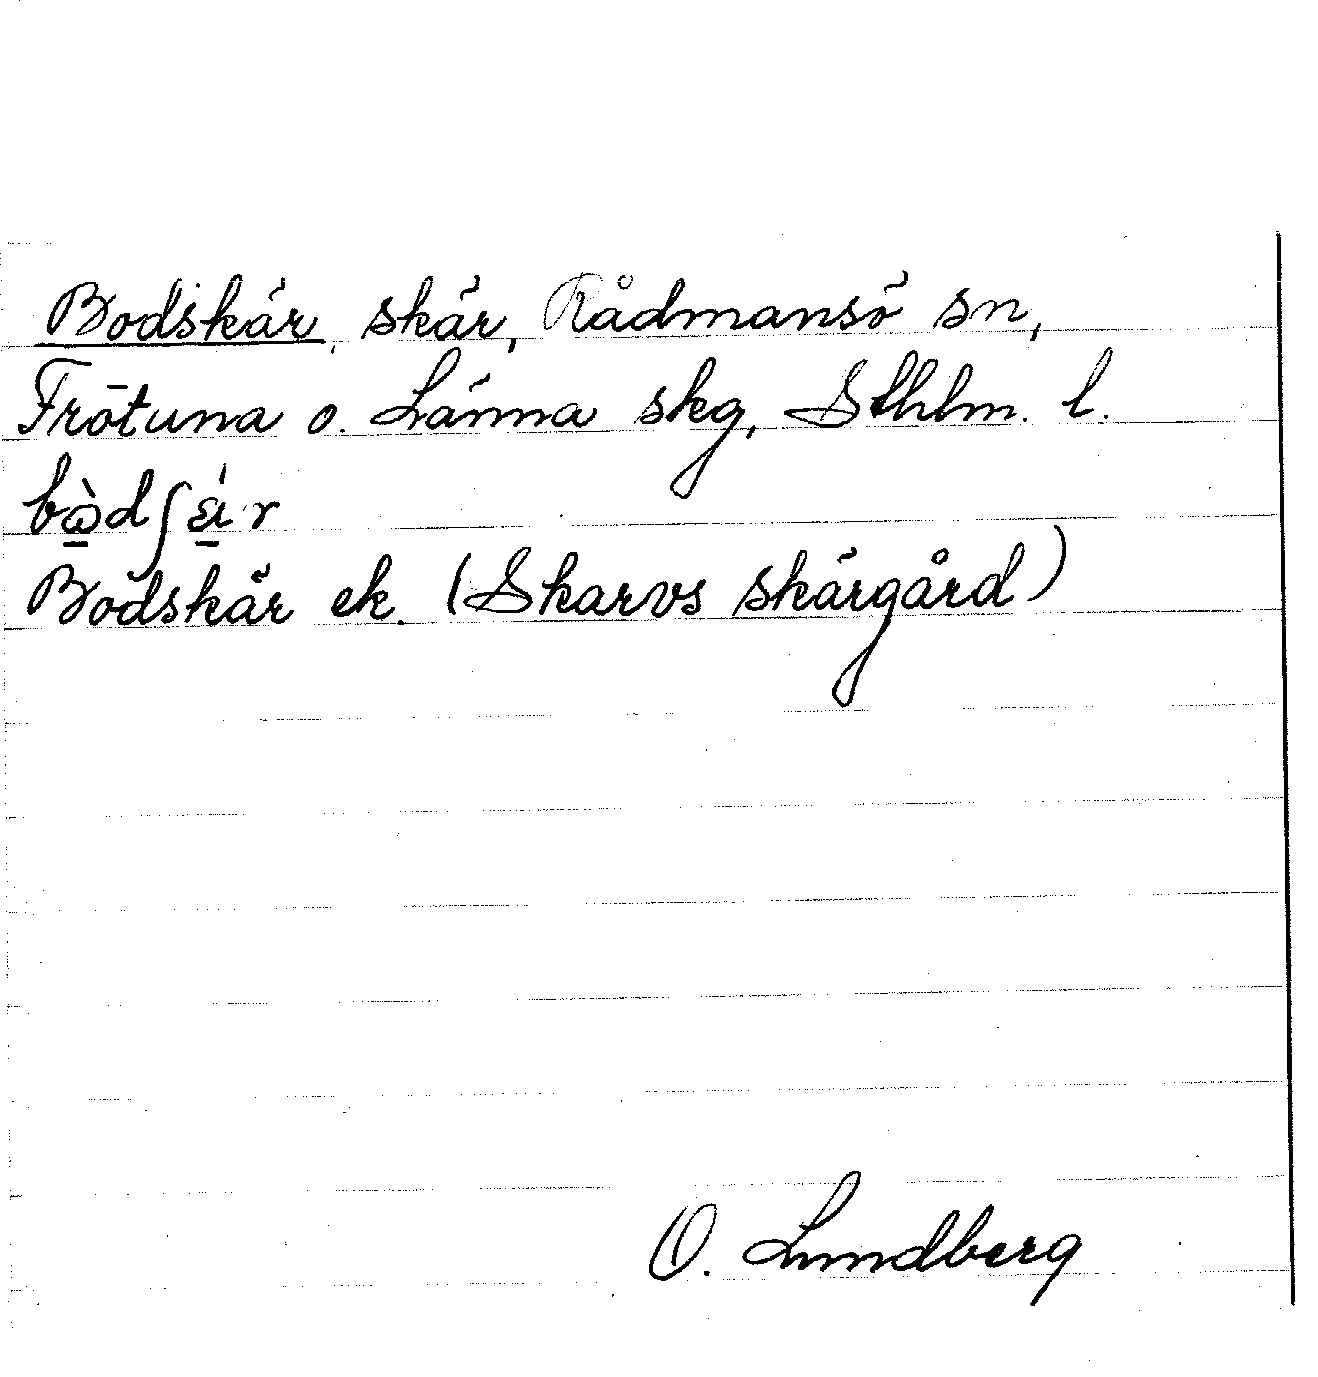 Bodskär, skär, Rådmansö sn,
Frötuna o. Länna skg, Sthlm. l.
bὼ̱dʃɛ̱́r
Bodskär ek. (Skarvs skärgård)
O. Lundberg